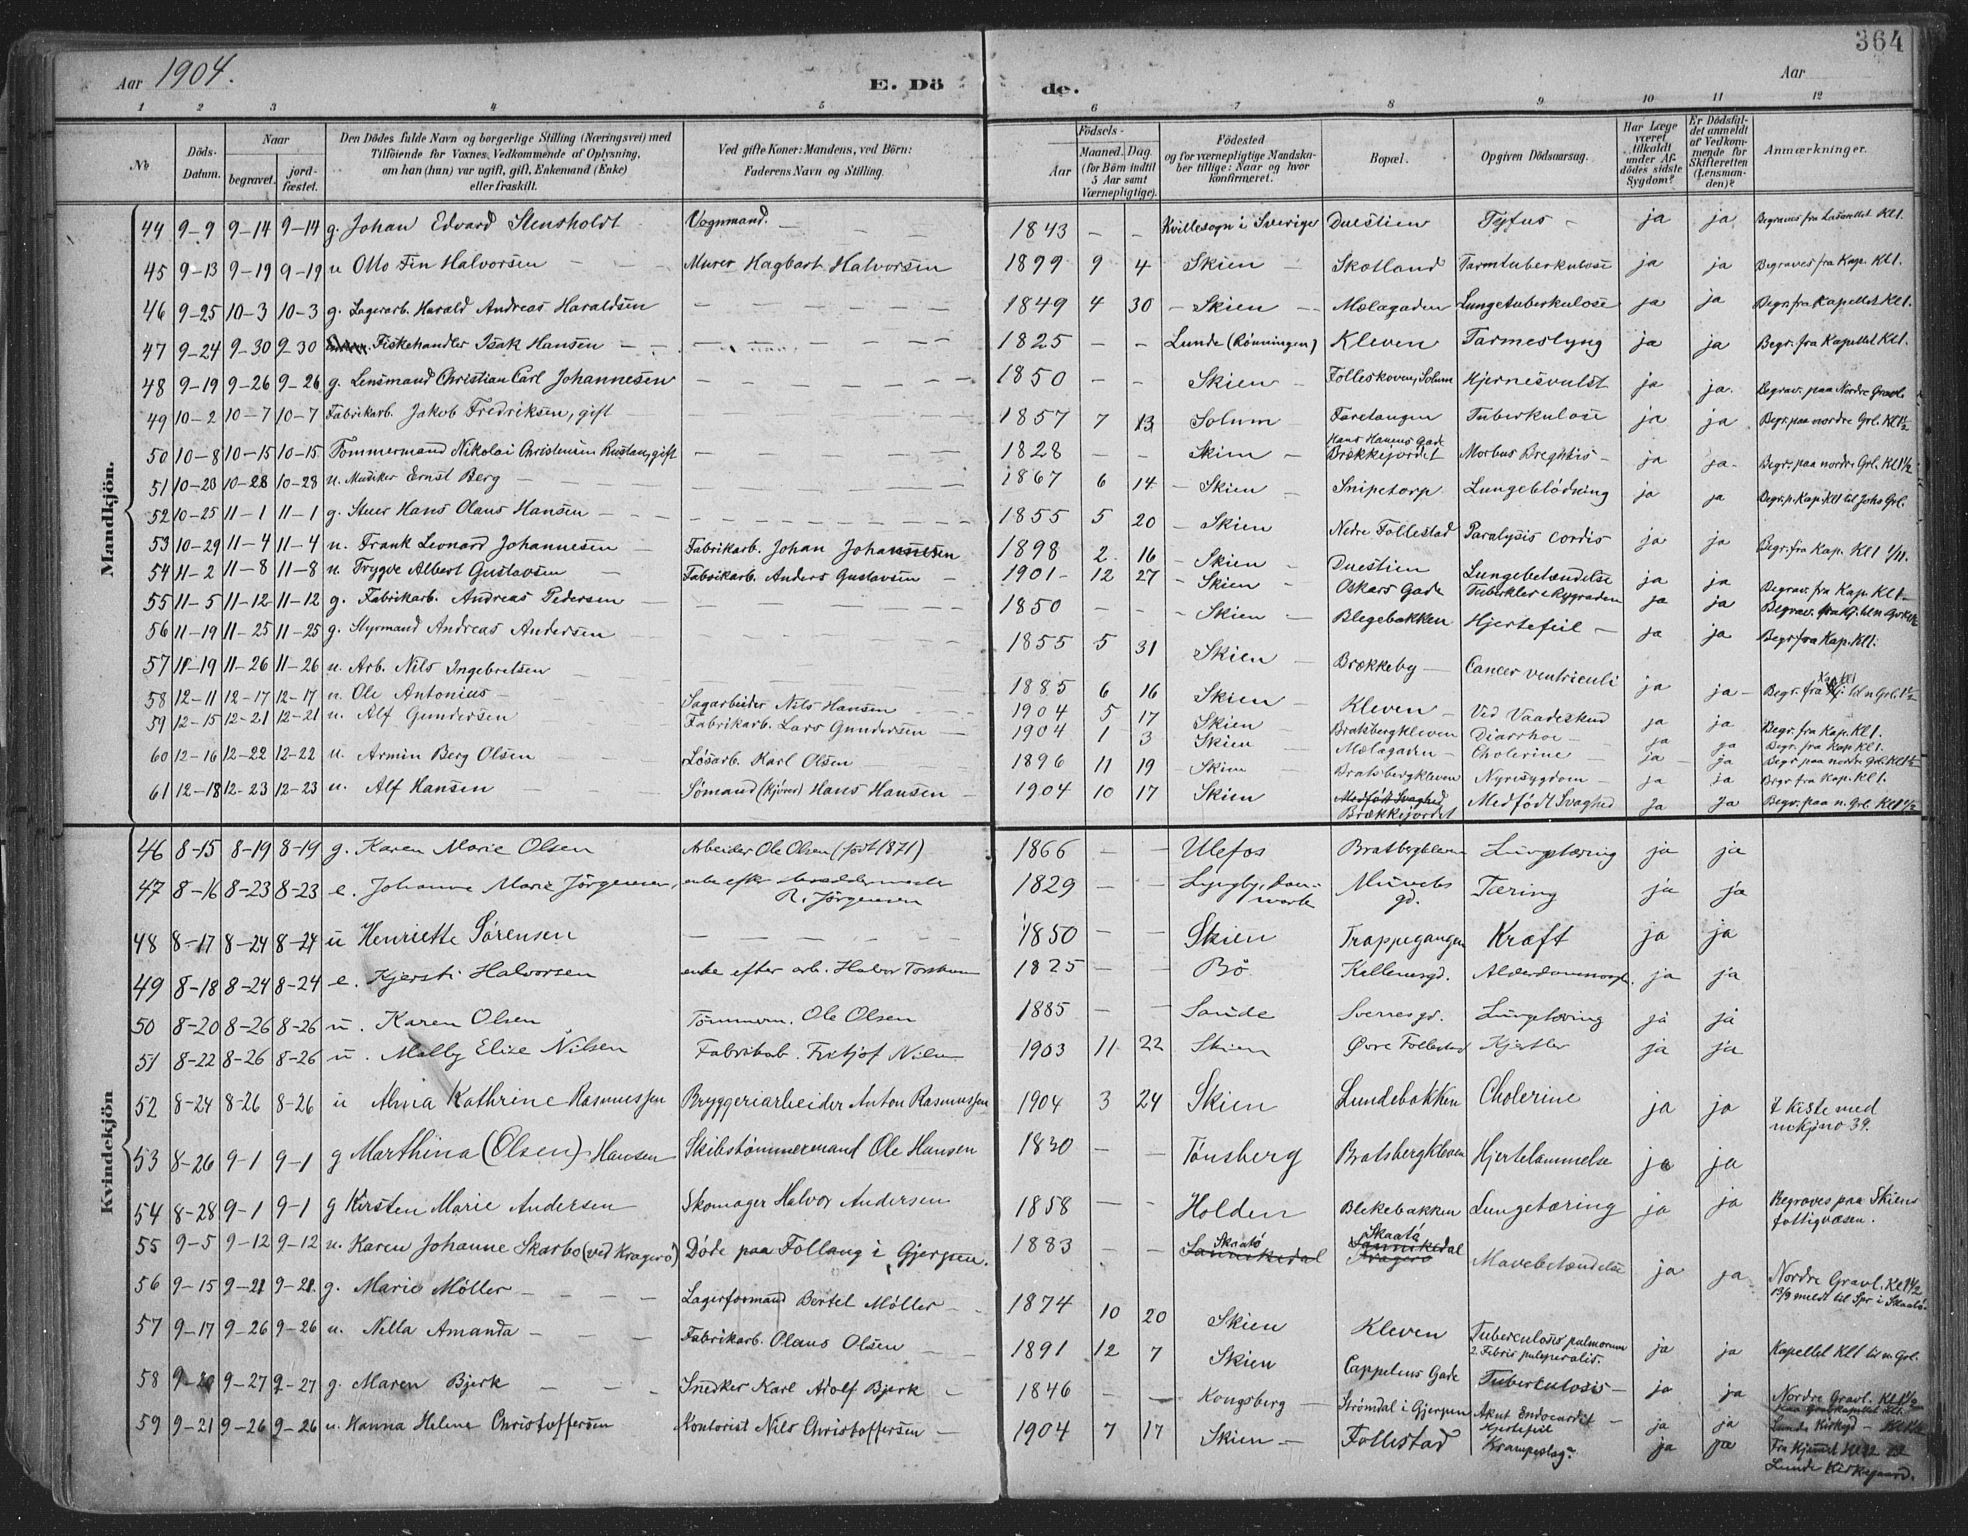 364
Aar 1904.
E. Dö
de.
Aar
1 2 3 4 5 6 7 8 9 10 11 12
No
Döds-Datum.
Naar
begravet.
jord-fæstet.
Den Dödes fulde Navn og borgerlige Stilling (Næringsvei) med
Tilföiende for Voxnes Vedkommende af Oplysning,
om han (hun) var ugift, gift, Enkemand (Enke)
eller fraskilt.
Ved gifte Koner: Mandens, ved Börn:
Faderens Navn og Stilling.
Födsels-
Aar
Maaned. Dag.
(for Børn indtil
5 Aar samt
Værnepligtige).
Födested
og for værnepligtige Mandska-
ber tillige: Naar og hvor
konfirmeret.
Bopæl.
Opgiven Dödsaarsag.
Har Læge
været
tilkaldt
under Af-
dödes sidste
Sygdom?
Er Dödsfal-
det anmeldt
af Vedkom-
mende for
Skifteretten
(Lensman-
den)?
Anmærkninger.
Mandkjön.
44 9-9 9-14 9-14 g. Johan Edvard Stensholdt Vognmand. 1843 – – Kvillesogn i Sverige Duestien Tyfus – ja ja Begraves fra Kl 1.
45 9-13 9-19 9-19 u Otto Fin Halvorsen Murer Hagbart Halvorsen 1899 9 4 Skien Skotland Tarmtuberkulose ja ja Begraves fra Kap. Kl 1.
46 9-25 10-3 10-3 g. Lagerarb. Harald Andreas Haraldsen 1849 4 30 Skien Mælagaden Lungetuberkulose ja ja Begr. fra Kapellet Kl 1.
47 9-24 9-30 9-30 Fiskehandler Isak Hansen 1825 – – Lunde (Rønningen) Kleven Tarmeslyng ja ja Begr. fra Kapellet Kl 1.
48 9-19 9-26 9-26 g. Lensmand Christian Carl Johannesen 1850 – – Skien Folleskoven, Solum Hjernesvulst ja ja. Begrav. paa Nordre Gravl.
49 10-2 10-7 10-7 Fabrikarb. Jakob Fredriksen, gift 1857 7 13 Solum Faretangen Tuberkulose ja ja Begr. paa nordre Grl. Kl 1 1/2
50 10-8 10-15 10-15 Tømmermand Nikolai Christensen Rustan, gift 1828 – – Skien Hans Hanens Gade Brækkejordet Morbus Breghtis – ja ja Begr. paa nordre Grl. Kl 1 1/2
51 10-23 10-28 10-28 u. Musiker Ernst Berg 1867 6 14 Skien Snipetorp Lungeblödning ja ja Begr. p. Kap. Kl 1 til Johs Grl.
52 10-25 11-1 11-1 g. Stuer Hans Olaus Hansen 1855 5 20 Skien Nedre Follestad Paralysis cordis ja ja Begr. fra Kap. Kl 1 1/11.
53 10-29 11-4 11-4 u. Frank Leonard Johannesen Fabrikarb. Johan Johannesen 1898 2 16 Skien Duestien Lungebetændelse ja ja Begrav. fra Kap. Kl 1
54 11-2 11-8 11-8 u. Trygve Albert Gustavsen Fabrikarb. Anders Gustavsen 1901 12 27 Skien Oskars Gade Tuberkler i Rygraden ja ja
55 11-5 11-12 11-12 g. Fabrikarb. Andreas Pedersen 1850 – – Skien Blegebakken Hjertefeil – ja ja Begr. fra Kap. Kl 1.
56 11-19 11-25 11-25 g. Styrmand Andreas Andersen 1855 5 31 Skien Brækkeby Cancer ventriculi ja ja
57 11-19 11-26 11-26 u. Arb. Nils Ingebretsen 1885 6 16 Skien Kleven Ved Vaadeskud ja ja Begr. fra Kap. Kl 1.
58 12-11 12-17 12-17 u. Ole Antonius Sagarbeider Nils Hansen 1904 5 17 Skien Bratsbergkleven Diarrhoe ja ja Begr. fra Kap. Kl 1.
59 12-15 12-21 12-21 u. Alf Gundersen Fabrikarb. Lars Gundersen 1904 1 3 Skien Mælagaden Cholerine ja ja Begr. paa nordre Grl. Kl 1 1/2
60 12-16 12-22 12-22 u. Armin Berg Olsen Løsarb. Karl Olsen 1896 11 19 Skien Bratsbergkleven Nyresygdom ja ja Begr. fra Kap. Kl 1.
61 12-18 12-23 12-23 u. Alf Hansen Sömand (Kjörer) Hans Hansen 1904 10 17 Skien Medfödt Svaghed Brækkejordet Medfödt Svaghed ja ja Begr. paa n. Grl. Kl 1 1/2
Kvindekjön
46 8-15 8-19 8-19 g. Karen Marie Olsen Arbeider Ole Olsen (født 1871) 1866 – – Ulefos Bratsbergkleven Lungetæring ja ja
47 8-16 8-23 8-23 e. Johanne Marie Jørgensen, enke efter R. Jørgensen 1829 – – gd. Tæring ja ja
48 8-17 8-24 8-24 u Henriette Sørensen 1850 Skien Trappegangen Kræft ja ja
49 8-18 8-24 8-24 e. Kjersti Halvorsen enke efter arb. Halvor 1825 – – Bö ja ja
50 8-20 8-26 8-26 u. Karen Olsen Tømmerm. Ole Olsen 1885 – – Sande Lungetæring ja ja
51 8-22 8-26 8-26 u. Molly Elise Nilsen Fabrikab. Fritjof Nilsen 1903 11 22 Skien Øvre Follestad Kjertler ja ja
52 8-24 8-26 8-26 u Alvia Kathrine Rasmussen Bryggeriarbeider Anton Rasmussen 1904 3 24 Skien Lundebakken Cholerine ja ja i kiste med mkjno 39.
53 8-26 9-1 9-1 g Marthina (Olsen) Hansen Skibstømmermand Ole Hansen 1830 – – Tønsberg Bratsbergkleven Hjertelammelse ja ja
54 8-28 9-1 9-1 g Kirsten Marie Andersen Skomager Halvor Andersen 1858 – – Holden Blekebakken Lungetæring ja ja Begraves paa Skiens fattigvæsen.
55 9-5 9-12 9-12 u. Karen Johanne Skarbo (ved Kragerø) Døde paa Follaug i Gjerpen. 1883 – – Skaatö Sannikedal Skaatö Sannikedal Kragerø Mavebetændelse ja ja Nordre Gravl. Kl 1 1/2
13/9 meldt til Spr i Skaatö.
56 9-15 9-21 9-21. g. Marie Møller Lagerformand Bertel Møller 1874 10 20 Skien Kleven Tuberculosis pulmorum
2. Febris puerperalis. ja ja Kapellet Kl 1 til n. Grl.
57 9-17 9-26 9-26 u. Nilla Amanda Fabrikarb. Olaus Olsen 1891 12 7 Skien Cappelens Gade Tuberculosis ja ja Nordre Gravl. Kl 1 1/2
58 9-20 9-27 9-27 g. Maren Bjerk Snedker Karl Adolf Bjerk 1846 – – Kongsberg Strømdal i Gjerpen Akut Endocardit Hjertefeil ja ja Lunde Kirkgd
59 9-21 9-26 9-26 u. Hanna Helene Christoffersen Kontorist Nils Christoffersen 1904 7 17 Skien Follestad Krampeslag ja ja Lunde Kirkegaard.